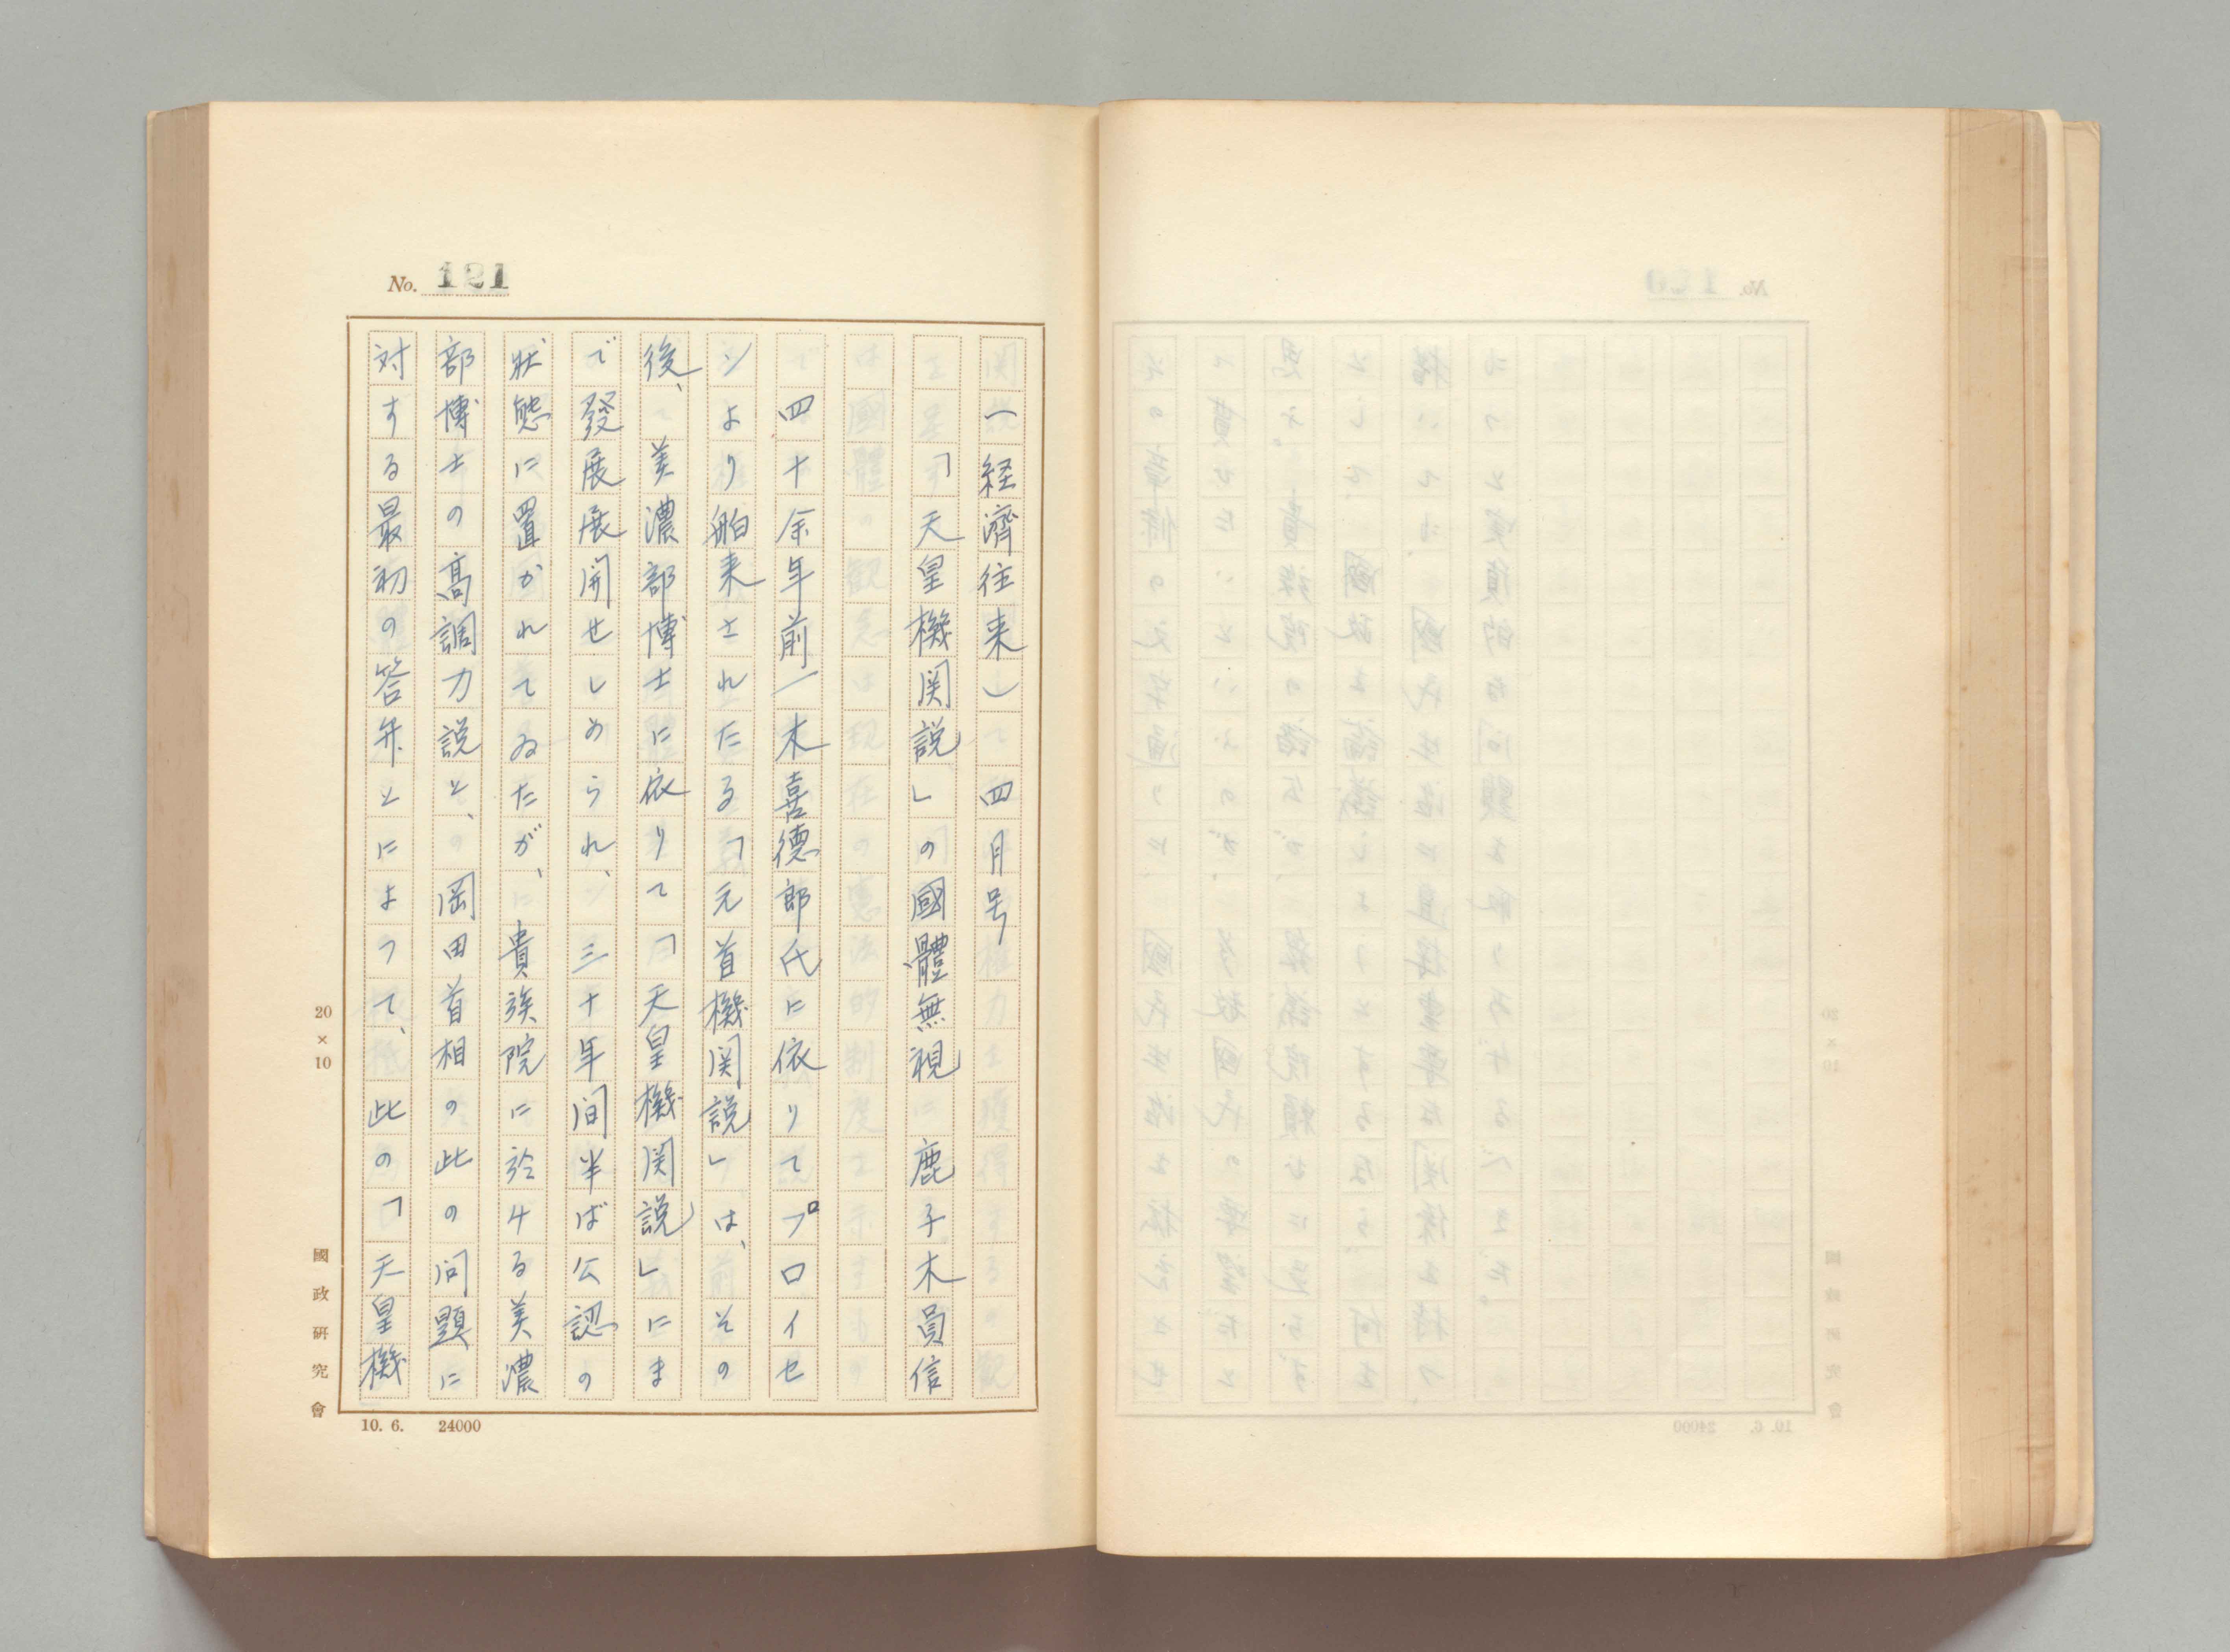 No. 121
(経済往来) 四月号
「天皇機関説」の國體無視 鹿子木員信
四十余年前一木喜德郎氏に依りてプロイセ
ンより舶来されたる「元首機関説」は、その
後、美濃部博士に依りて「天皇機関説」にま
で發展展開せしめられ、三十年間半ば公認の
狀態に置かれてゐたが、貴族院に於ける美濃
部博士の高調力説と、岡田首相の此の問題に
対する最初の答弁とによつて、此の「天皇機
20×10
國政研究會
10. 6. 24000